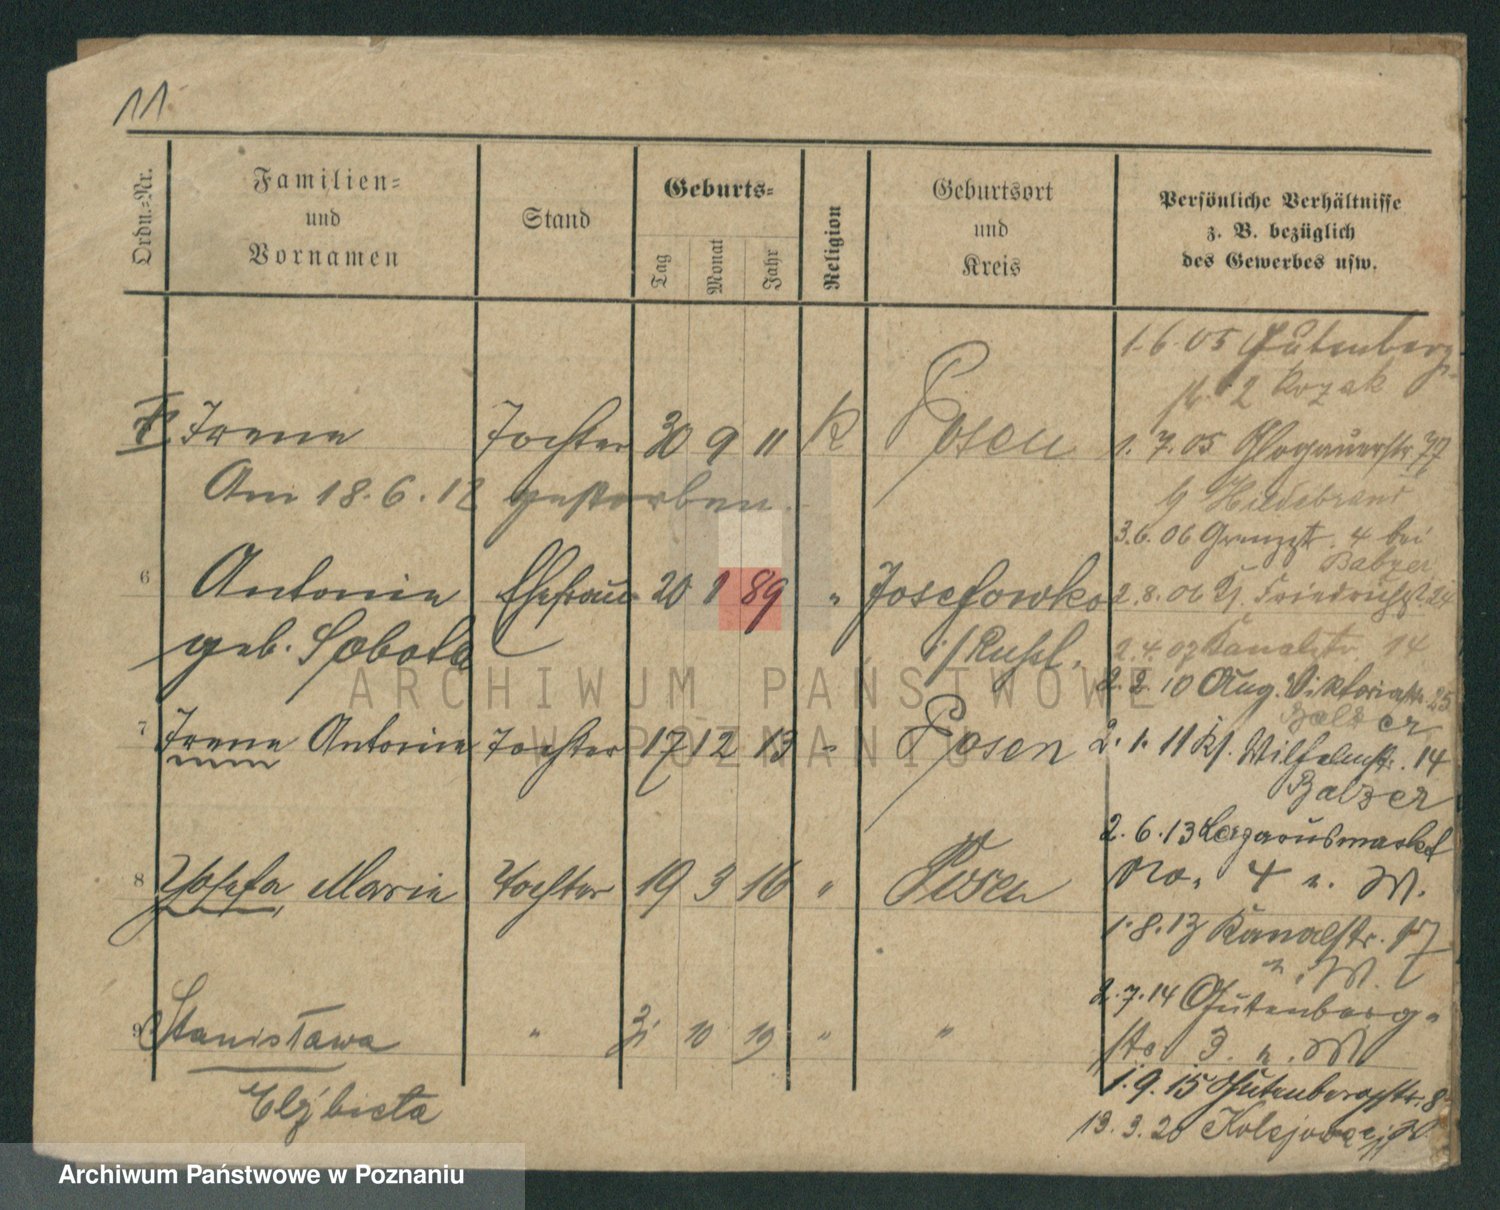 11
Ordn.-Nr.
Familien-
und
Vornamen
Stand
Geburts-
Tag
Monat
Jahr
Religion
Geburtsort
und
Kreis
Persönliche Verhältnisse
z. B. bezüglich
des Gewerbes usw.
Irene Tochter 30 9 11 K Posen
Am 18.6.12 gestorben.
6 Antonie Ehefrau 20 1 89 " Josefowko
geb. Sobota i/Russl.
7 Irene Antonie Tochter 17 12 13 " Posen
8 Josefa Marie Tochter 19 3 16 " Posen
9 Stanisława " 10 19 " "
Elżbieta
1.6.05 Gutenberg-
str. 2 Kozak
1.7.05 Glogauerstr. 77
b/ Hildebrand
3.6.06 Grenzstr. 4 bei
Balzer
2.8.06 Friedrichstr. 24
2.4.07 Kanalstr. 14
2.2.10 Aug. Viktoriastr. 25
Balzer
2.1.11 Kl. Wilhelmstr. 14
Balzer
2.6.13 Lazarusmarkt
No. 4 n. W.
1.8.13 Kanalstr. 17
n. W.
2.7.14 Gutenberg-
str. 3. n. W
1.9.15 Gutenbergstr. 8
19.3.20 Kolejowa
ARCHIWUM PAŃSTWOWE
W POZNANIU
Archiwum Państwowe w Poznaniu